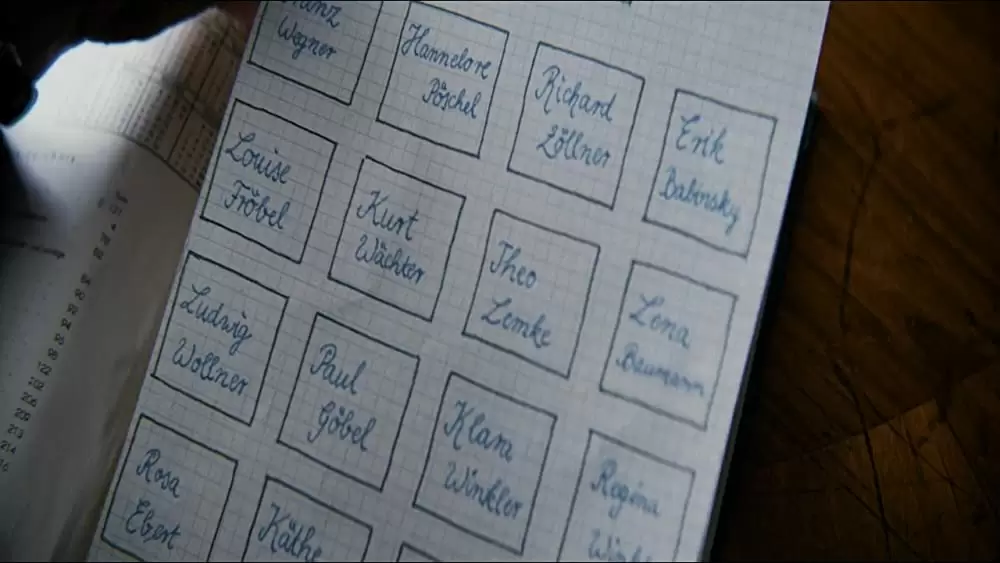 Wegner
Hannelore
Pöschel
Richard
Zöllner
Erik
Babinsky
Louise
Fröbel
Kurt
Wächter
Theo
Lemke
Lena
Baumann
Ludwig
Wollner
Paul
Göbel
Klara
Winkler
Regina
Rosa
Ebert
Käthe